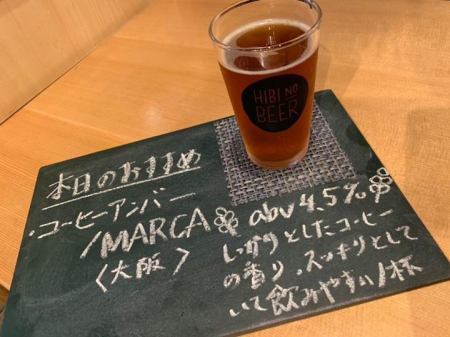 HIBI NO
BEER
本日のおすすめ
・コーヒーアンバー
/MARCA
〈大阪〉
abv 4.5%
しっかりとしたコーヒー
の香り。スッキリとして
いて飲みやすい1杯